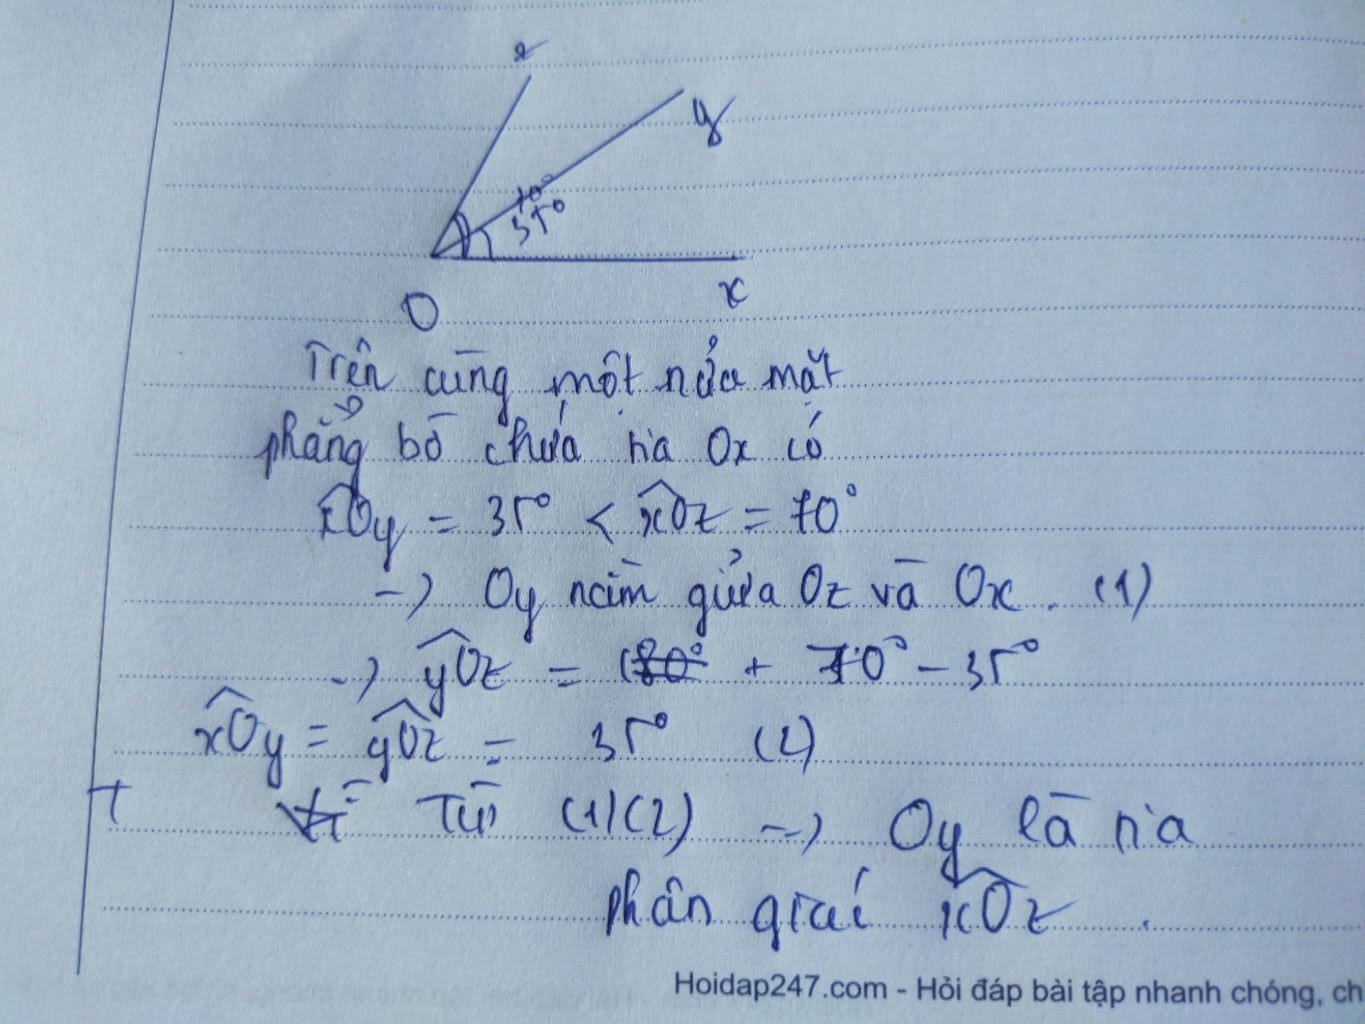 z
y
70°
35°
O
x
Trên cùng một nửa mặt
phẳng bờ chứa tia Ox có
xÔy = 35° < xÔz = 70°
-> Oy nằm giữa Oz và Ox. (1)
-> yÔz = + 70° - 35°
xÔy = yÔz = 35° (2)
+ Từ (1)(2) -> Oy là tia
phân giác xÔz.
Hoidap247.com - Hỏi đáp bài tập nhanh chóng, ch